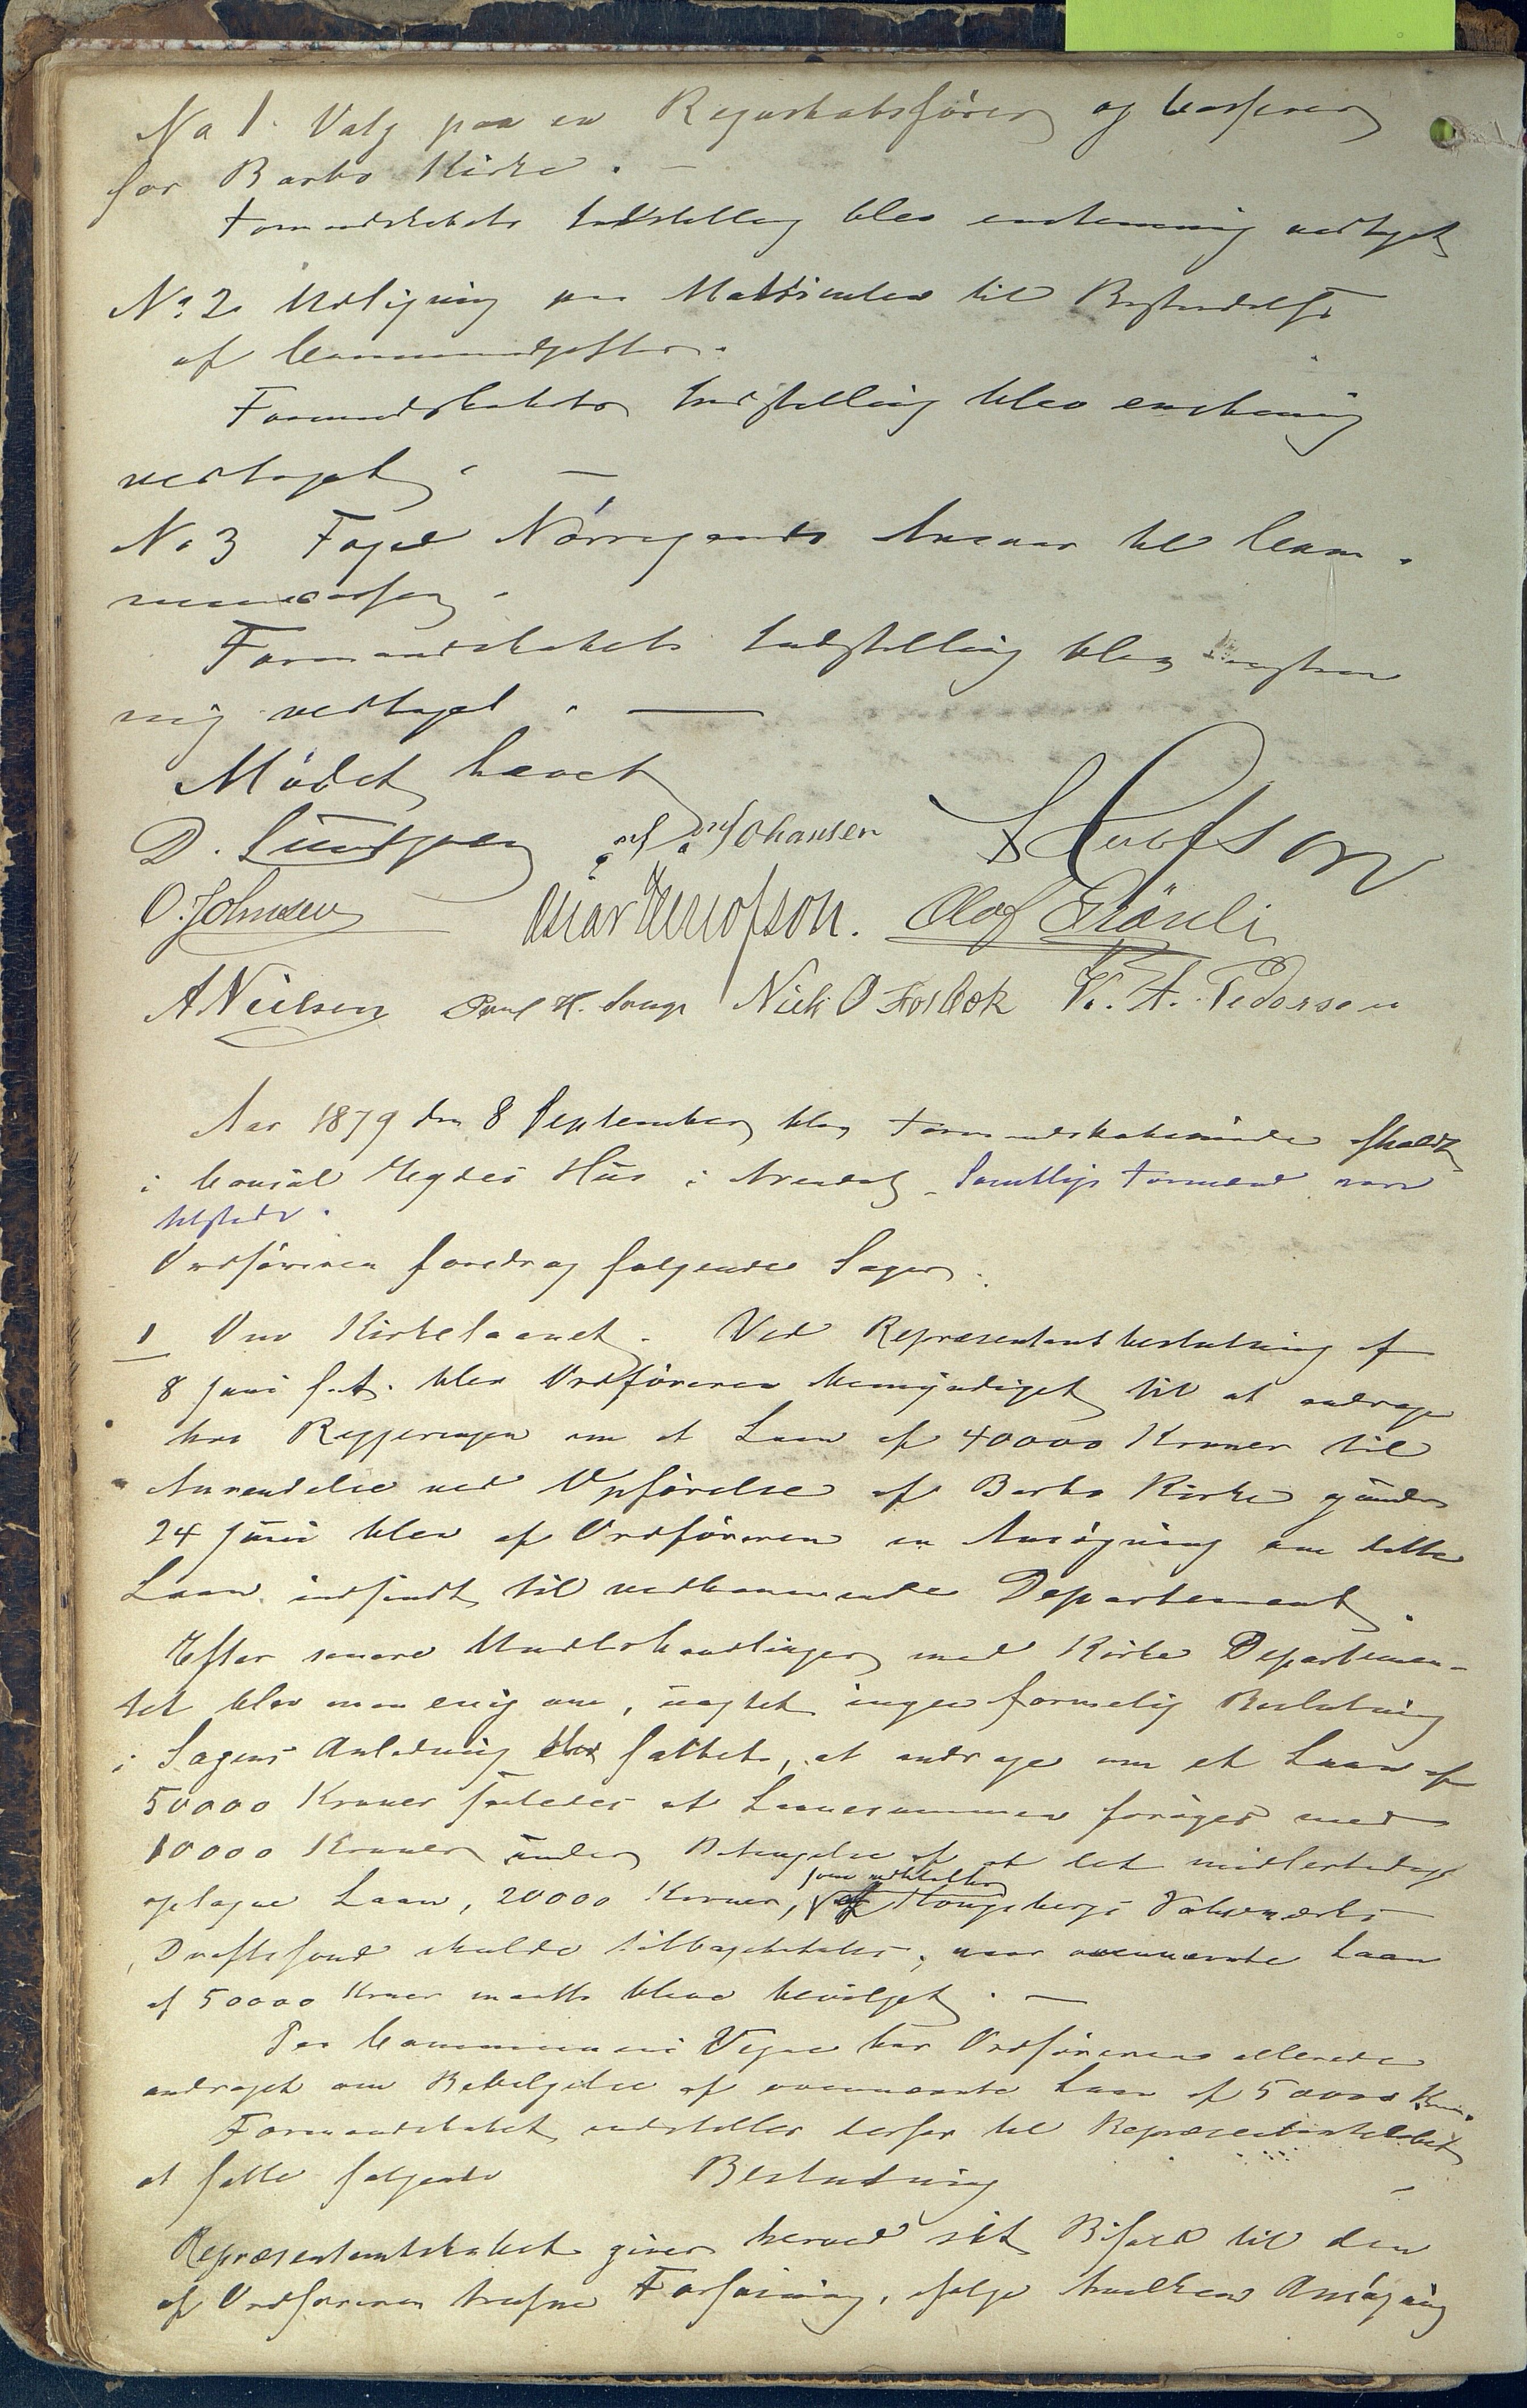 No 1. Valg paa en Regnskabsfører og Casserer
for Barbo Kirke. –
Formandskabets Indstilling blev enstemmig vedtaget
No 2. Udligning paa Matriculen til Bestridelse
af Communeudgifter.
Formandskabets Indstilling blev enstemmig
vedtaget. –
No 3 Foged Nørregaards Ansvar til Com-
munecassen.
Formandskabets Indstilling blev enstem
mig vedtaget. –
Mødet hævet
D. Lundgren Johansen
O. Johnsen Oscar Olof
A Nielsen H. Nich O Fosbæk A. Pedersen
Aar 1879 den 8 September blev Formandskabsmøde afholdt
i Consul Hegdes Hus i Arendal. Samtlige Formænd vare
tilstede.
Ordføreren foredrog følgende Sager:
1 Om Kirkelaanet. Ved Repræsentantbeslutning af
8 Juni f.A. blev Ordføreren bemyndiget til at andrage
hos Regjeringen om et Laan af 40000 Kroner til
Anvendelse ved Opførelse af Barbo Kirke
24 Juni blev af Ordføreren en Ansøgning om dette
Laan indsendt til vedkommende Departement.
Efter senere Underhandlinger med Kirke Departemen-
tet blev man enig om, uagtet ingen formelig Beslutning
i Sagens Anledning blev fattet, at andrage om et Laan af
50000 Kroner saaledes at Laanesummen forøges med
10000 Kroner under Betingelse af at det midlertidige
optagne Laan, 20000 Kroner, af Kongsbergs Sølvværks
Driftsfond skulde tilbagebetales, naar ovennævnte Laan
af 50000 Kroner maatte blive bevilget. –
Paa Communens Vegne har Ordføreren allerede
andraget om Bevilgelse af ovennævnte Laan af 50000 Kroner.
Formandskabet indstiller derfor til Repræsentantskabet
at fatte følgende Beslutning
Repræsentantskabet giver herved sit Bifald til den
af Ordføreren trufne Forføining, ifølge hvilken Ansøgning